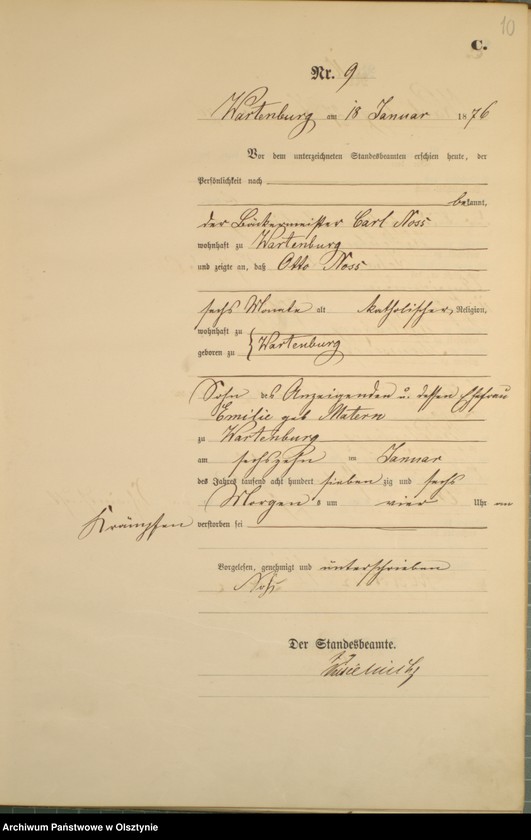 10
C.
Nr. 9
Wartenburg am 18 Januar 1876
Vor dem unterzeichneten Standesbeamten erschien heute, der
Persönlichkeit nach
bekannt,
der Bäckermeister Carl Noss
wohnhaft zu Wartenburg
und zeigte an, daß Otto Noss
sechs Monate alt katholischer Religion,
wohnhaft zu
geboren zu { Wartenburg
Sohn des Anzeigenden u. dessen Ehefrau
Emilie geb Matern
zu Wartenburg
am sechszehn ten Januar
des Jahres tausend acht hundert sieben zig und sechs
Morgen s um vier Uhr an
Krämpfen verstorben sei
Vorgelesen, genehmigt und unterschrieben
Noss
Der Standesbeamte.
Archiwum Państwowe w Olsztynie